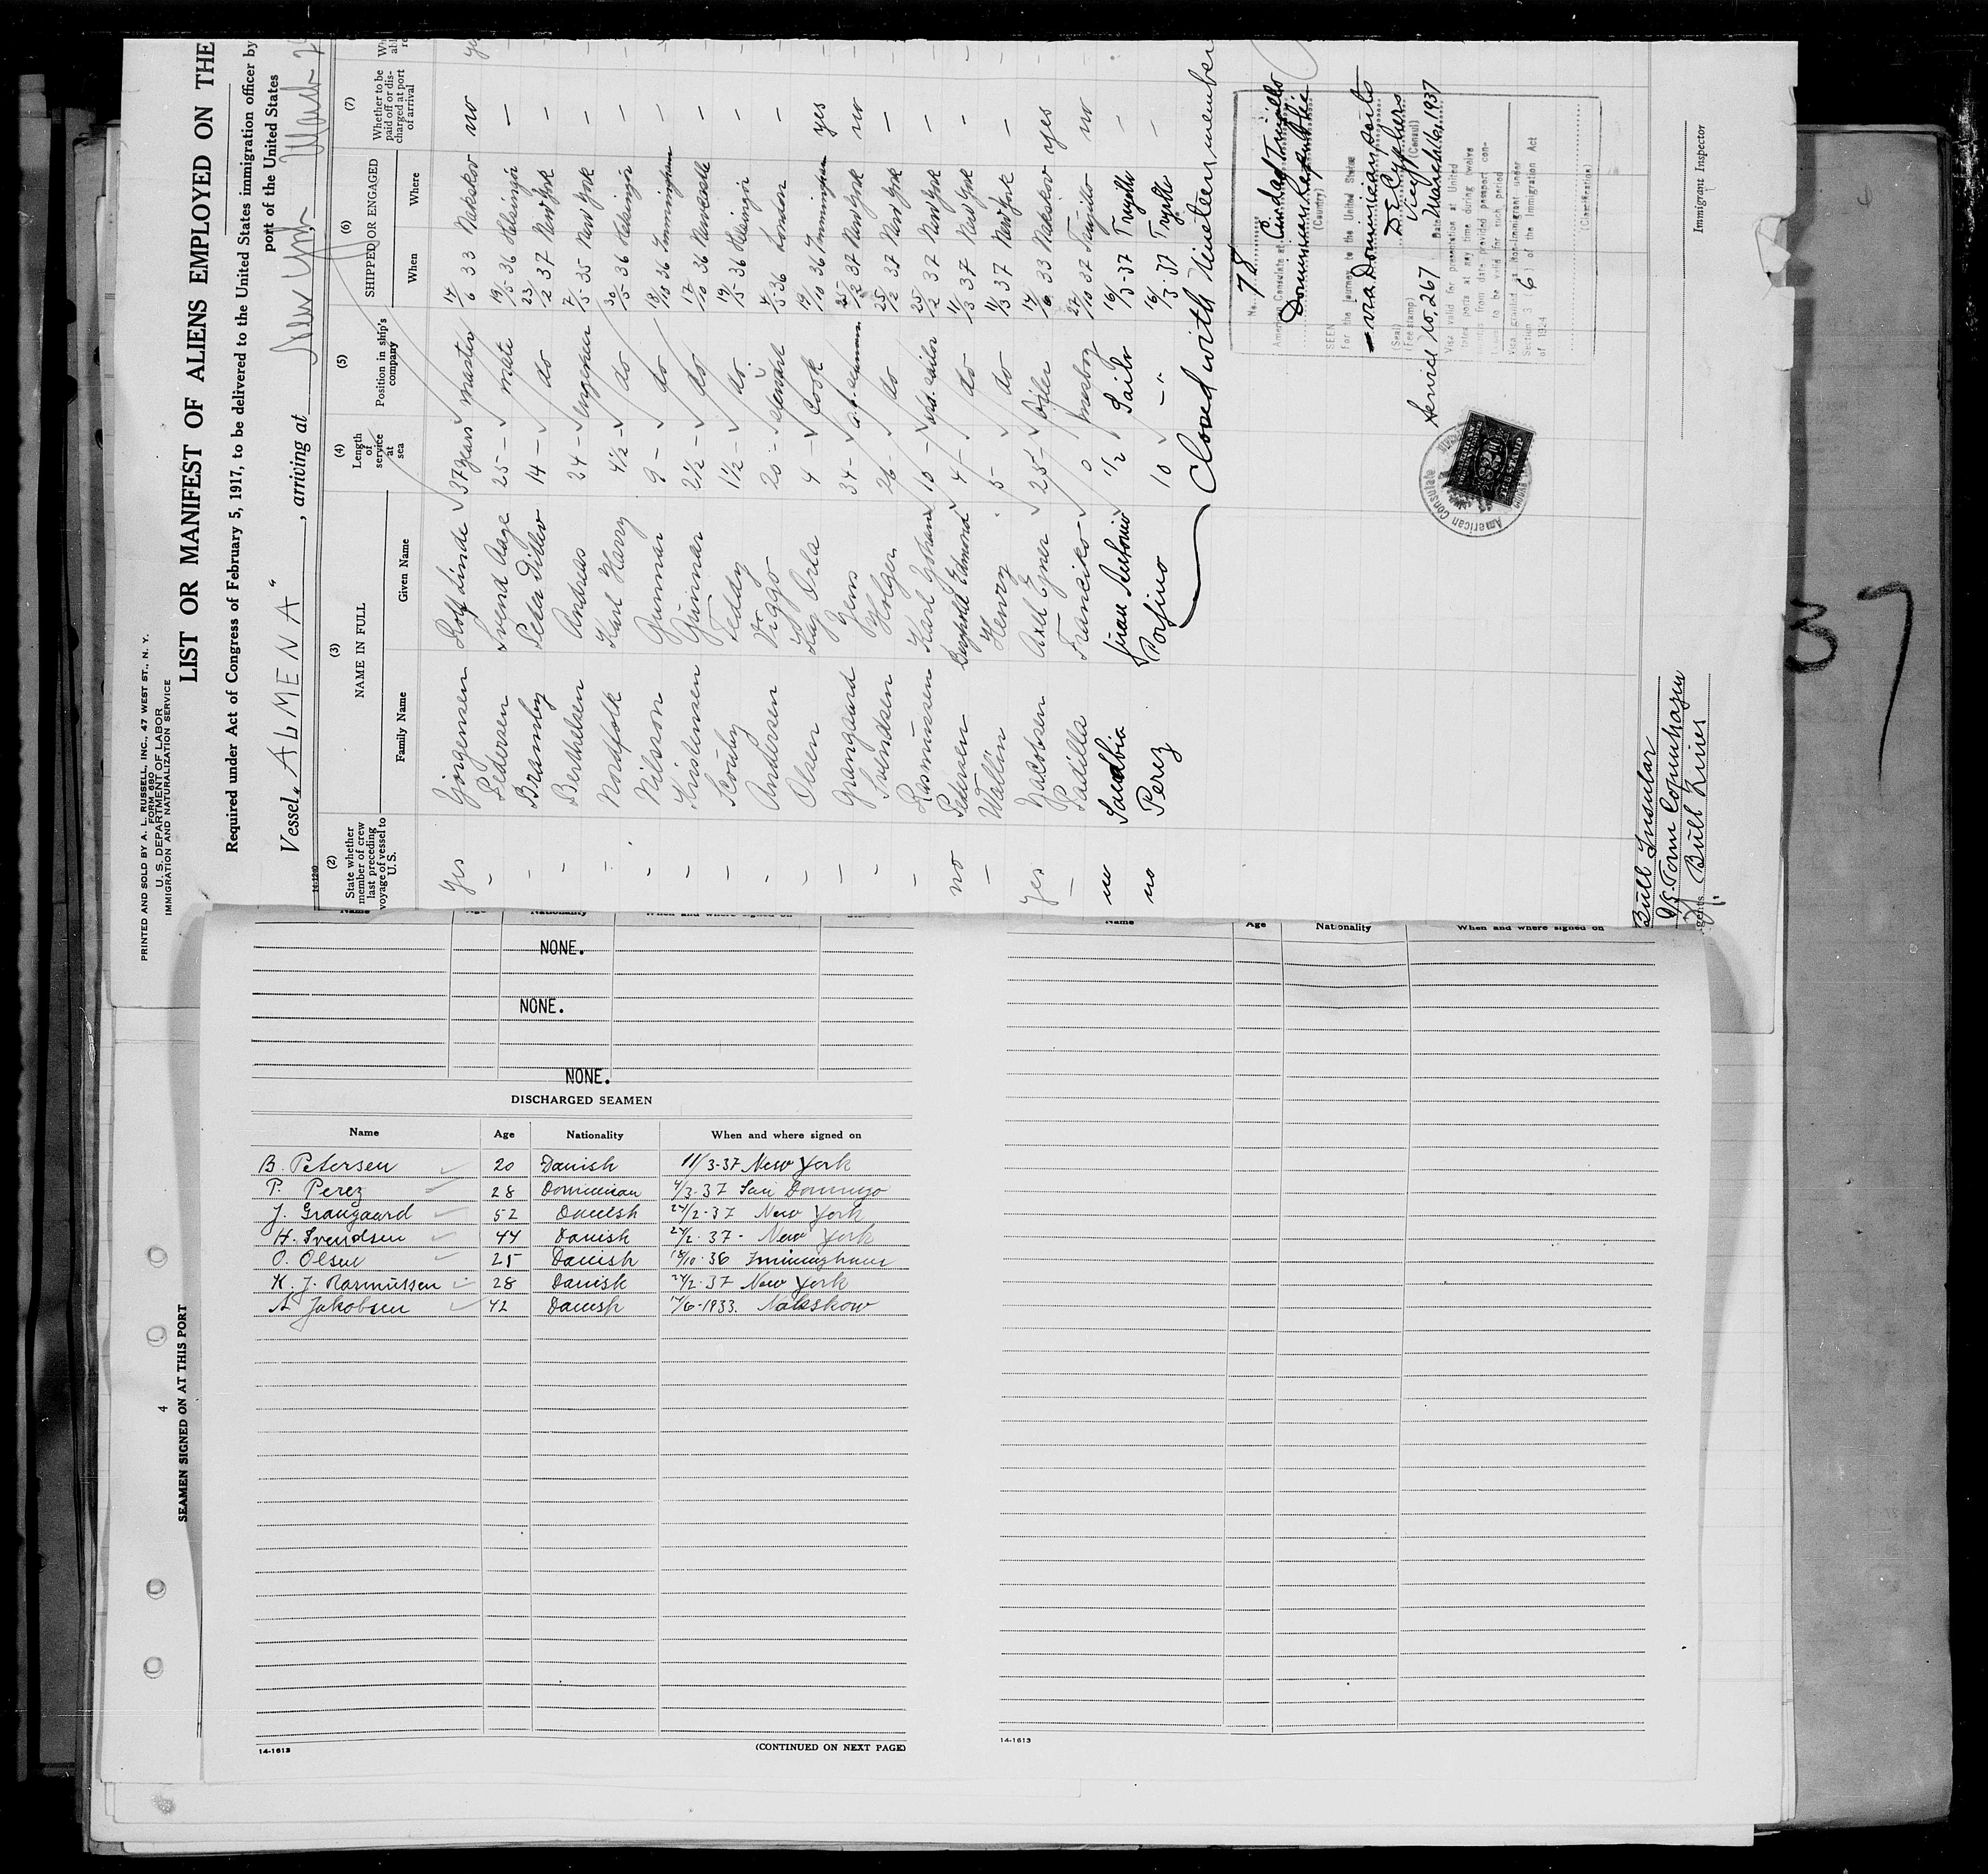 PRINTED AND SOLD BY A. L. RUSSELL, INC., 47 WEST ST., N. Y.
FORM 680
U. S. DEPARTMENT OF LABOR
IMMIGRATION AND NATURALIZATION SERVICE
LIST OR MANIFEST OF ALIENS EMPLOYED ON THE
Required under Act of Congress of February 5, 1917, to be delivered to the United States immigration officer by
port of the United States
Vessel „ALMENA“, arriving at New York March
14-1240
(2) (3) (4) (5) (6) (7)
State whether member of crew last preceding voyage of vessel to U.S. NAME IN FULL Length of service at sea Position in ship's company SHIPPED OR ENGAGED Whether to be paid off or discharged at port of arrival
Family Name Given Name When Where
Yes Jörgensen Rolf Linde 37 years master 14/6 33 Nakskov no
- Pedersen Svend Aage 25 - mate 19/5 36 Helsingör -
- Bramby Peter Ditlev 14 - do 23/2 37 New York -
- Berthelsen Andreas 24 - engineer 7/5 35 New York -
- Nordfolk Karl Harry 4½ - do 30/5 36 Helsingör -
Nilsson Gunnar 9 - do 18/10 36 Immingham -
- Kristensen Gunner 2½ - do 17/10 36 Newcastle -
- Scouby Teddy 1½ - do 19/5 36 Helsingör -
- Andersen Viggo 20 - steward 4/5 36 London -
- Olsen Orla 4 - Cook 19/10 36 Immingham yes
- Grangaard Jens 34 - a.b. seaman 25/2 37 New York no
- Svendsen Holger 26 - do 25/2 37 New York -
- Rasmussen Karl Johan 10 - sailor 25/2 37 New York -
no Petersen Edmond 4 - do 11/3 37 New York -
- Wallin Henry 5 - do 11/3 37 New York -
Yes Jacobsen Axel Ejner 25 - Oiler 14/6 33 Nakskov yes
- Padilla Francisko 0 messboy 27/10 37 Trujillo no
no Juan Antonio 1/2 Sailor 16/3-37 Trujillo -
no Perez Porfirio 10 - " - 16/3-37 Trujillo -
Closed with Nineteen member
No. 78
American Consulate at Ciudad Trujillo
Dominican Republic
(Country)
SEEN
For the journey to the United States
- via Dominican ports
(Seal) D E Cyphers
(Fee stamp) Vice (Consul)
Service No. 267 Date March 16, 1937
Visa valid for presentation at United
States ports at any time during twelve
months from date provided passport con-
tinues to be valid for such period
Visa granted as Non-Immigrant under
Section 3 (6) of the Immigration Act
of 1924
(Classification)
American Consulate
$2
FEE STAMP
Immigrant Inspector
Bull Insular
D/S Torm Copenhagen
Agents Bull Lines
37
4
SEAMEN SIGNED ON AT THIS PORT
Name Age Nationality When and where signed on
NONE.
NONE.
NONE.
DISCHARGED SEAMEN
Name Age Nationality When and where signed on
B. Petersen 20 Danish 11/3-37 New York
P. Perez 28 Dominican 4/3-37 San Domingo
J. Graugaard 52 Danish 24/2-37 New York
H. Svendsen 44 Danish 24/2-37 - New York
O. Olsen 25 Danish 18/10-36 Immingham
K. J. Rasmussen 28 Danish 24/2-37 New York
A Jakobsen 42 Danish 14/6-1933. Nakskow
14-1613
(CONTINUED ON NEXT PAGE)
Name Age Nationality When and where signed on
14-1613